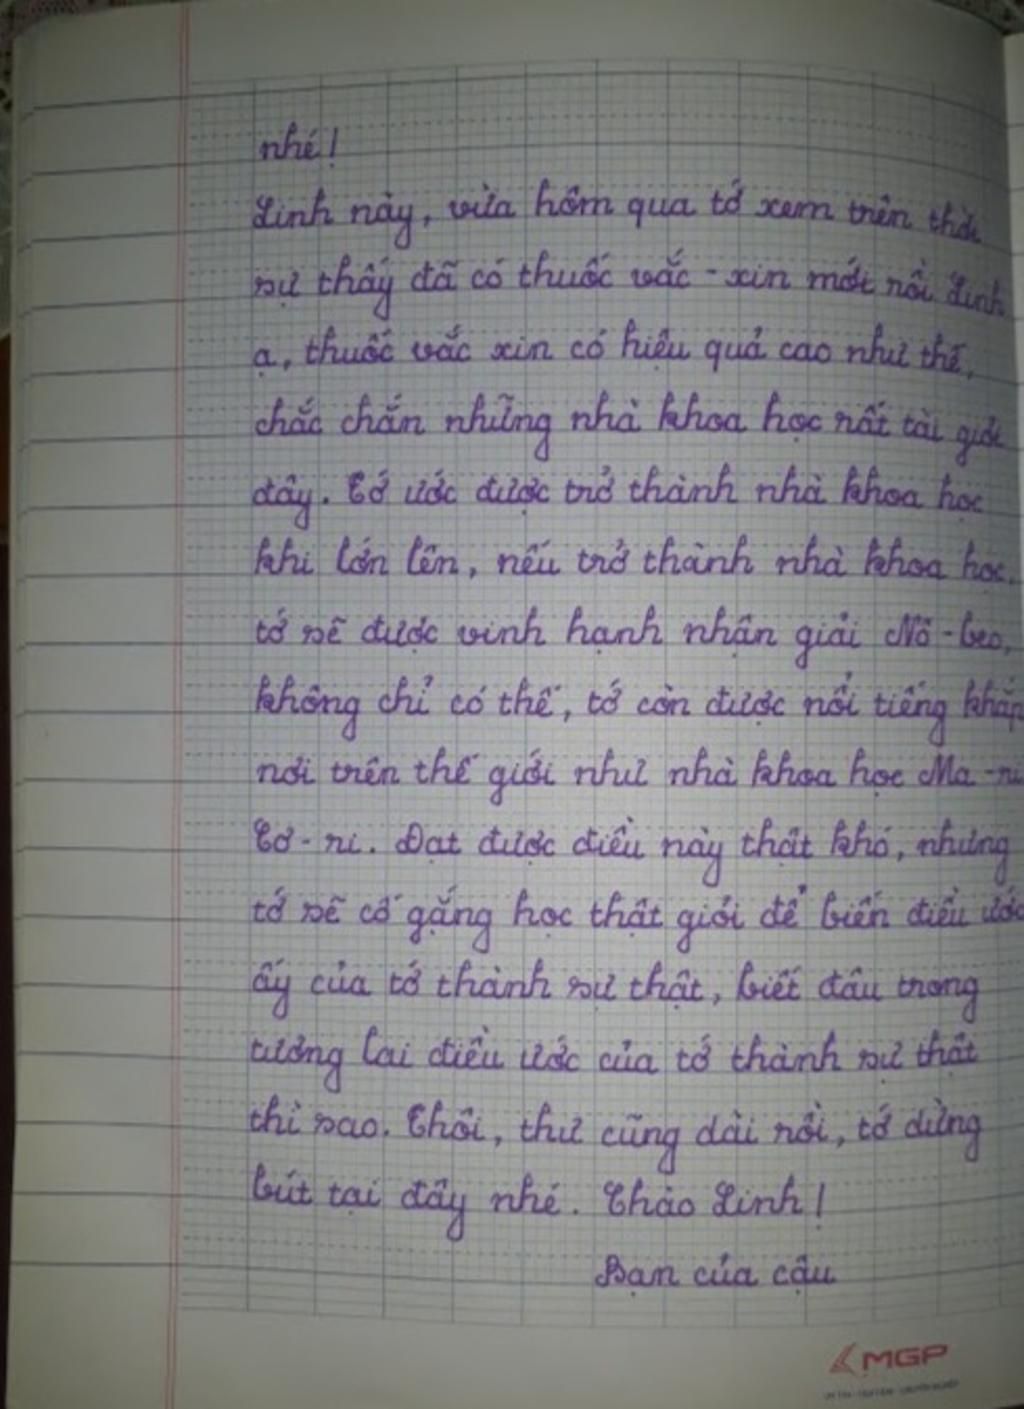 nhé!
Linh này, vừa hôm qua tớ xem trên thời
sự thấy đã có thuốc vắc-xin mới rồi Linh
ạ, thuốc vắc xin có hiệu quả cao như thế,
chắc chắn những nhà khoa học rất tài giỏi
đấy. Tớ ước được trở thành nhà khoa học
khi lớn lên, nếu trở thành nhà khoa học,
tớ sẽ được vinh hạnh nhận giải Nô-beo,
không chỉ có thế, tớ còn được nổi tiếng khắp
nơi trên thế giới như nhà khoa học Ma-ri
Cơ-ri. Đạt được điều này thật khó, nhưng
tớ sẽ cố gắng học thật giỏi để biến điều ước
ấy của tớ thành sự thật, biết đâu trong
tương lai điều ước của tớ thành sự thật
thì sao. Thôi, thư cũng dài rồi, tớ dừng
bút tại đây nhé. Chào Linh!
Bạn của cậu
MGP